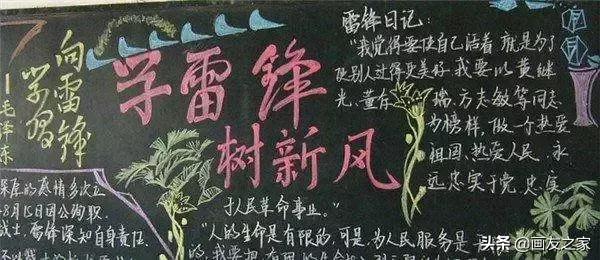 向雷锋
学习
一毛泽东
学雷锋
树新风
雷锋日记:
"我觉得要使自己活着 就是为了
使别人过得更美好 我要以黄继
光、董存瑞、方志敏等同志
为榜样,做一个热爱
祖国,热爱人民,永
远忠实于党,忠实
于人民革命事业。"
"人的生命是有限的,可是,为人民服务是
深厚的感情多次立
8月15日因公殉职
战士,雷锋深知自身责任
头条 @画友之家